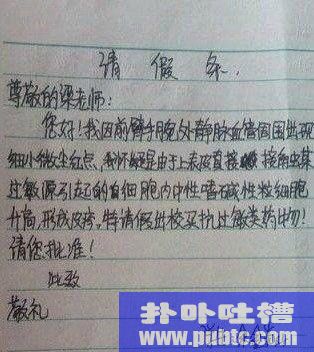 请假条.
尊敬的梁老师:
您好!我因前臂手腕处静脉血管周围出现
细小微尘红点,我怀疑是由于上表皮直接接触某
过敏源引起的白细胞内中性嗜碱性粒细胞
升高,形成皮疹,特请假出校买抗过敏类药物!
请您批准!
此致
敬礼
扑卟吐槽
www.pubtc.com